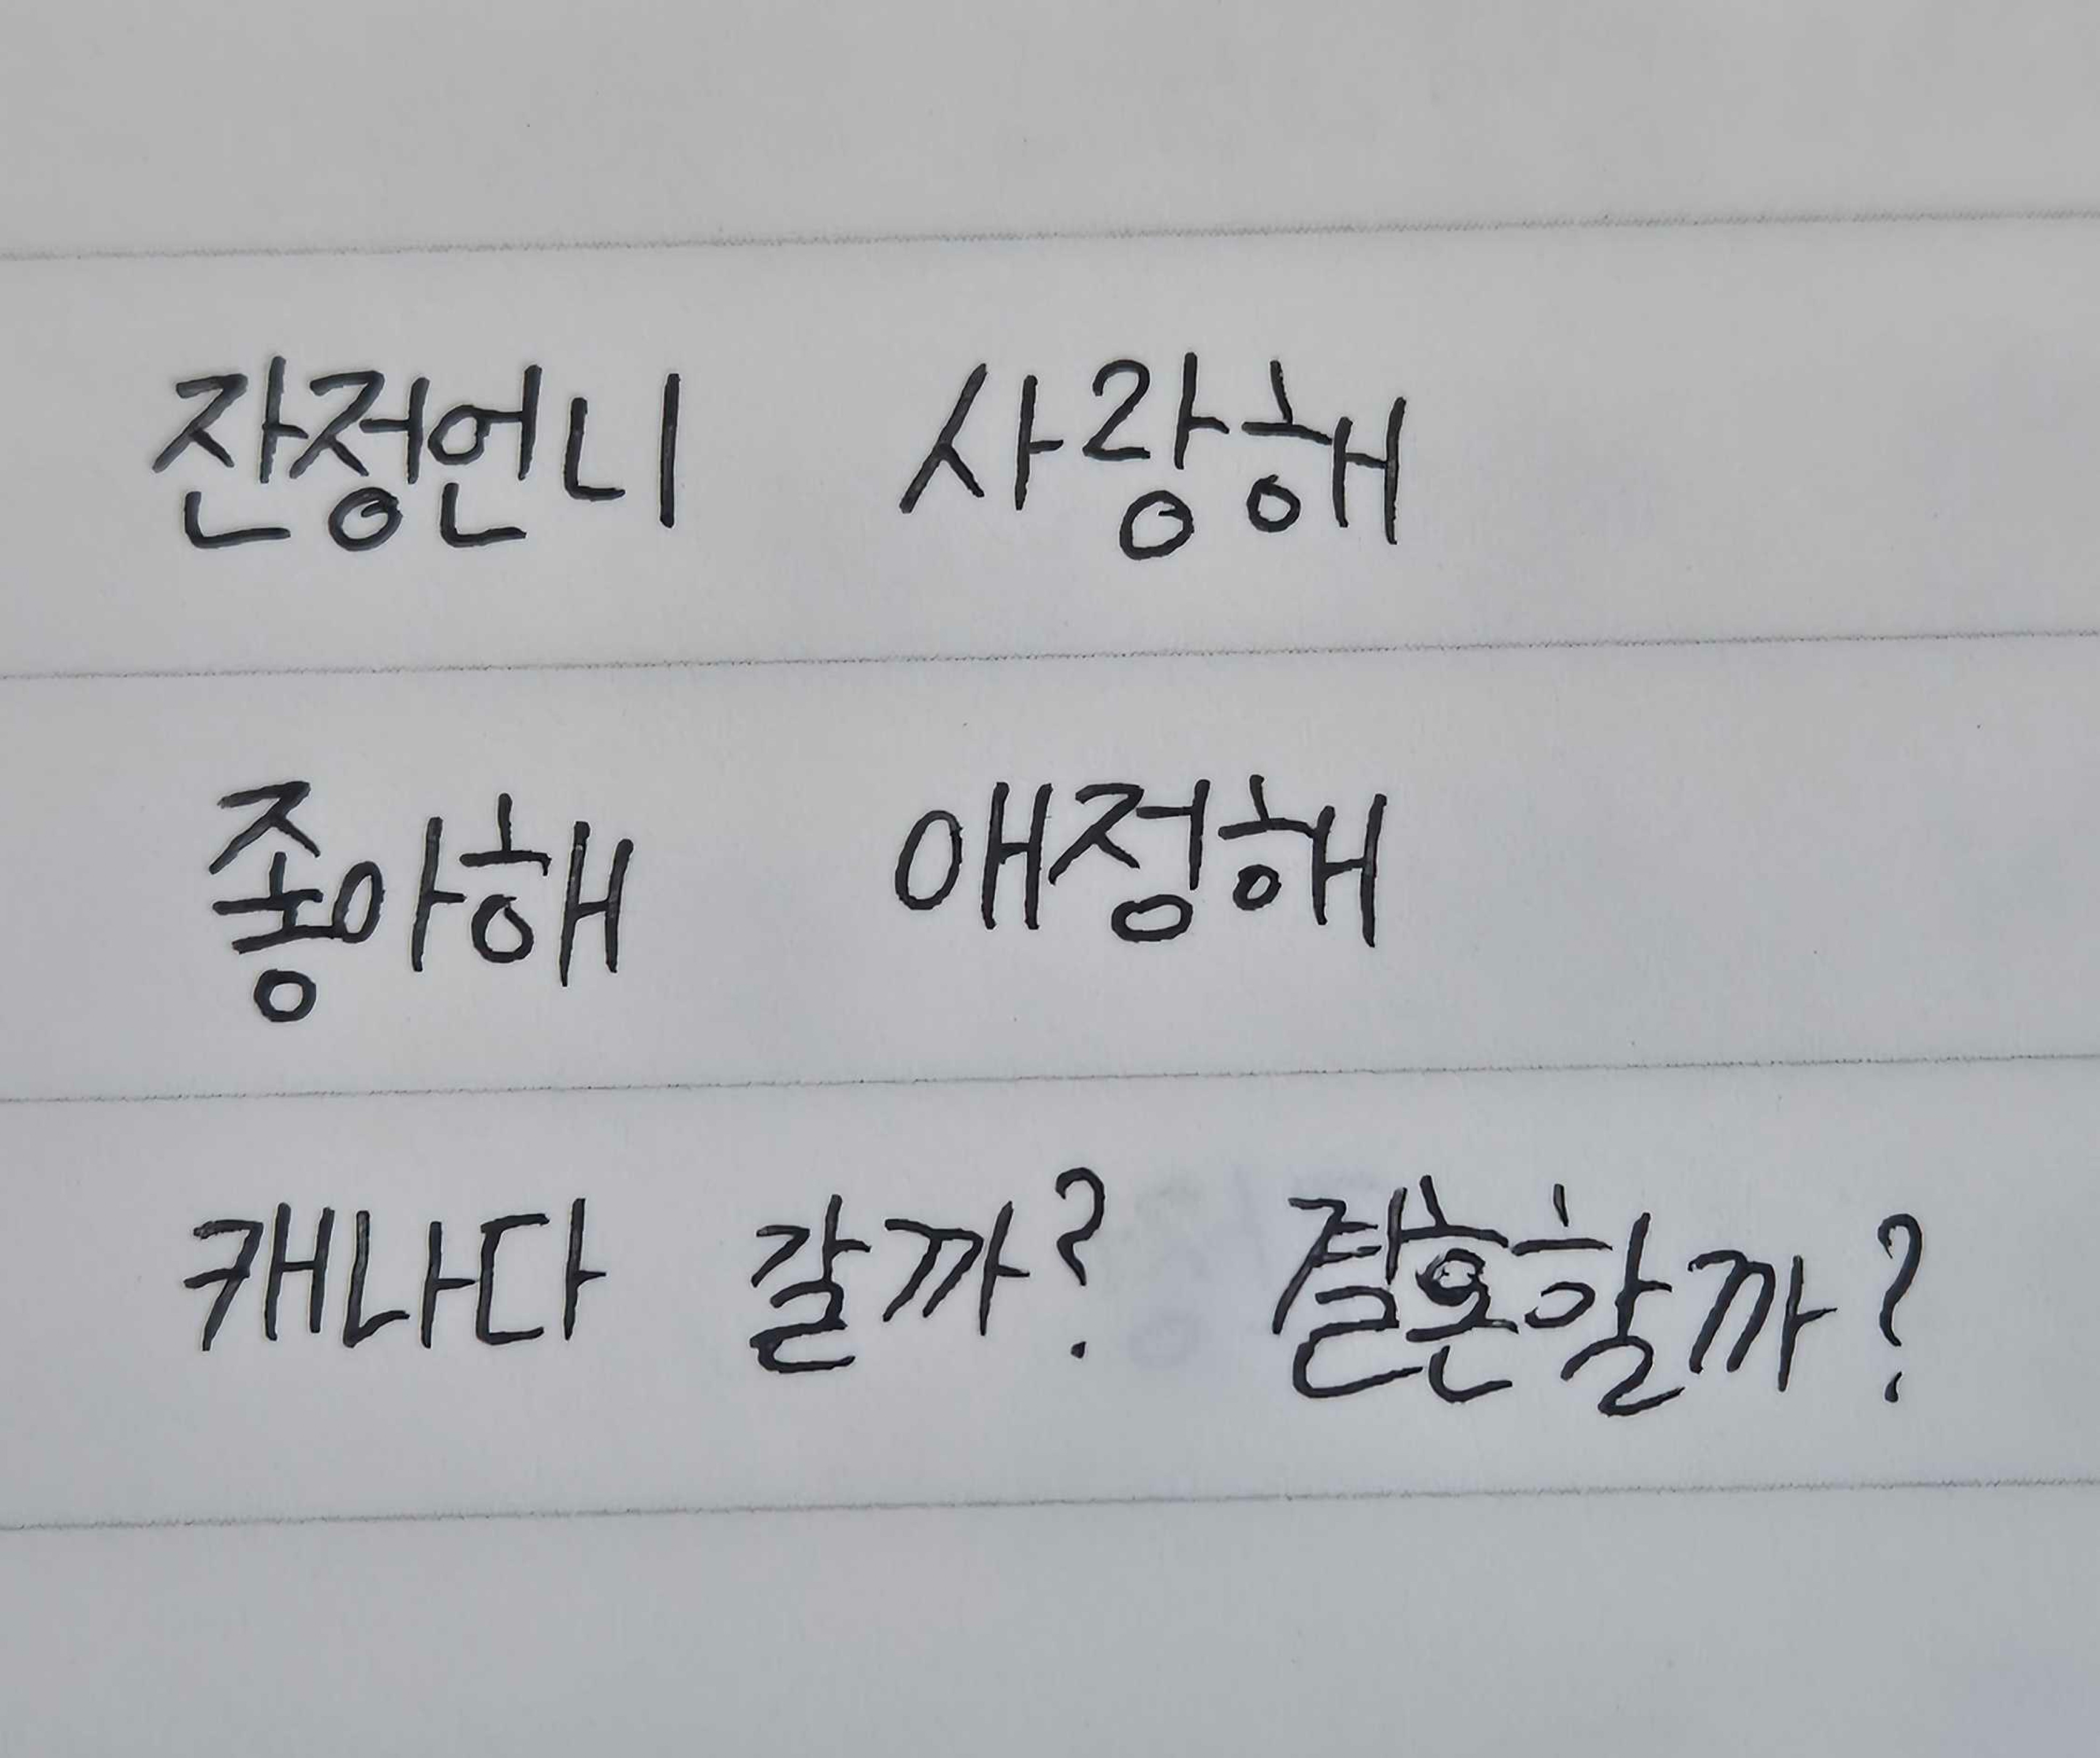 잔정언니 사랑해
좋아해 애정해
캐나다 갈까? 결혼할까?